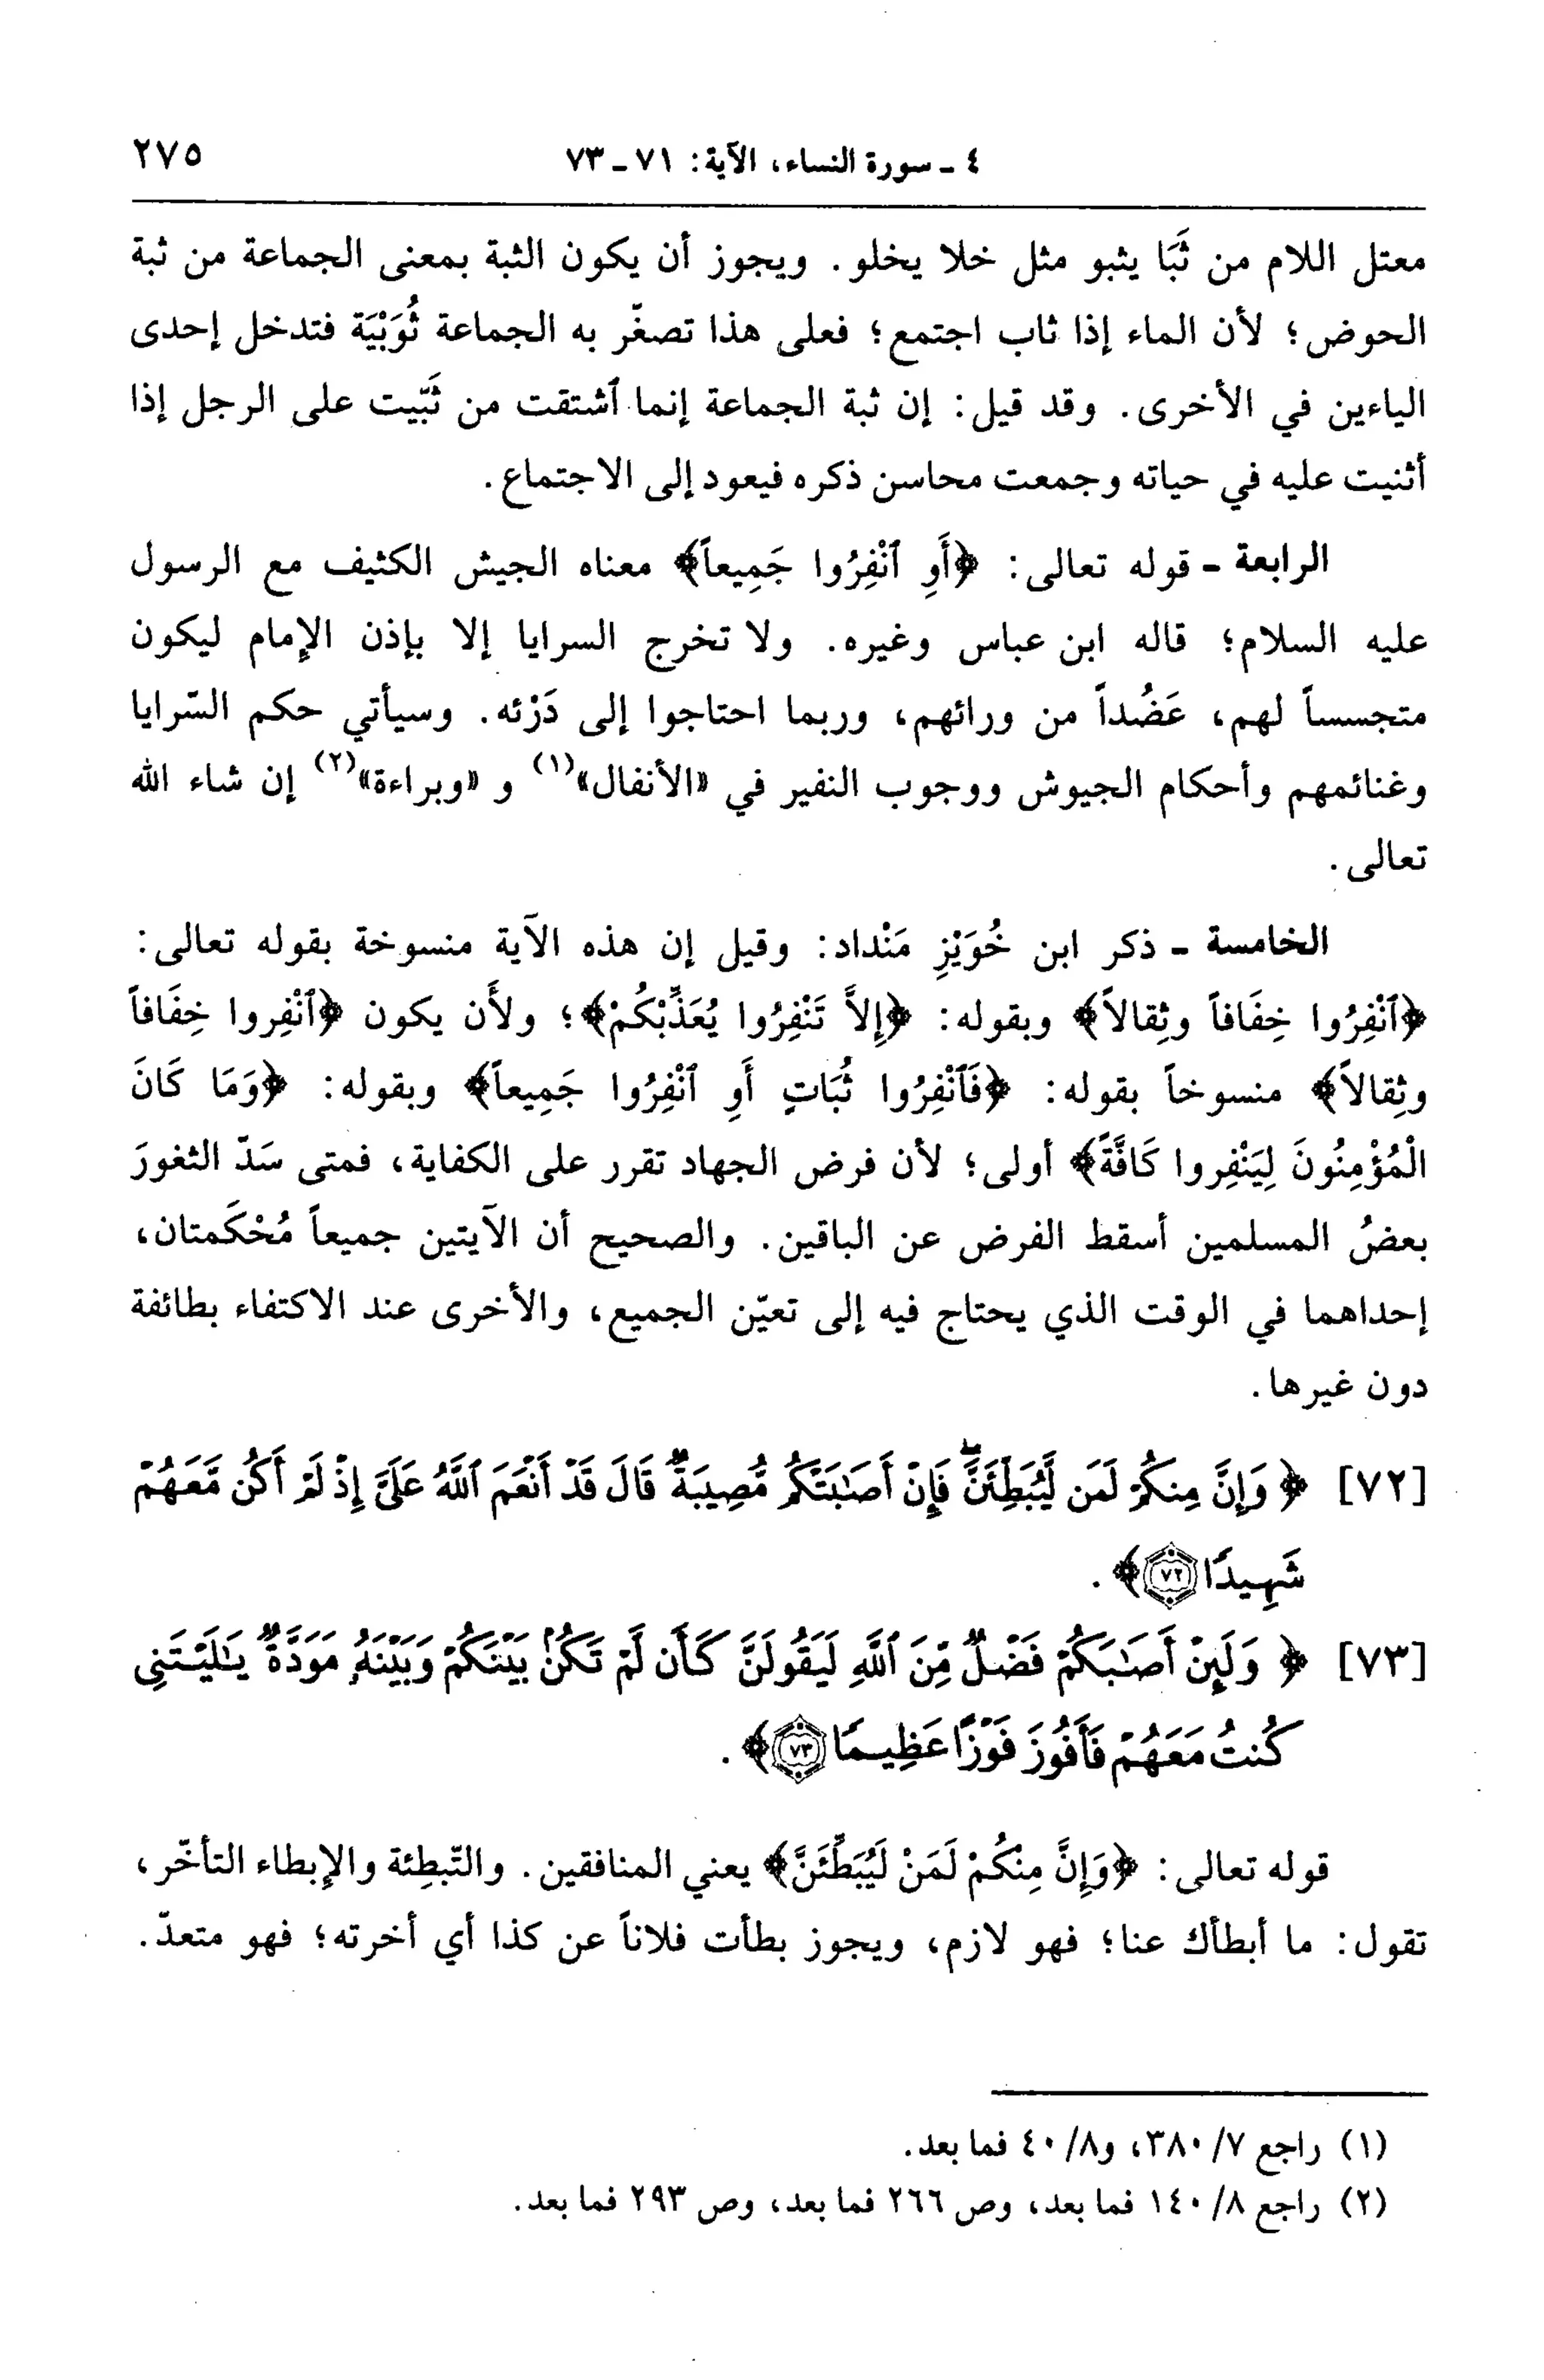 ٤ - سورة النساء، الآية: ٧١ - ٧٣ ٢٧٥
معتل اللام من ثَبَا يثبو مثل خلا يخلو. ويجوز أن يكون الثبة بمعنى الجماعة من ثبة
الحوض؛ لأن الماء إذا ثاب اجتمع؛ فعلى هذا تصغّر به الجماعة ثُوَيْبَة فتدخل إحدى
الياءين في الأخرى. وقد قيل: إن ثبة الجماعة إنما ٱشتقت من ثَبّيت على الرجل إذا
أثنيت عليه في حياته وجمعت محاسن ذكره فيعود إلى الاجتماع.
الرابعة - قوله تعالى: ﴿أَوِ ٱنْفِرُوا جَمِيعاً﴾ معناه الجيش الكثيف مع الرسول
عليه السلام؛ قاله ابن عباس وغيره. ولا تخرج السرايا إلا بإذن الإمام ليكون
متجسساً لهم، عَضُداً من ورائهم، وربما احتاجوا إلى دَرْئه. وسيأتي حكم السّرايا
وغنائمهم وأحكام الجيوش ووجوب النفير في «الأنفال»(١) و «وبراءة»(٢) إن شاء الله
تعالى.
الخامسة - ذكر ابن خُوَيْزِ مَنْداد: وقيل إن هذه الآية منسوخة بقوله تعالى:
﴿ٱنْفِرُوا خِفَافاً وثِقالاً﴾ وبقوله: ﴿إِلاَّ تَنْفِرُوا يُعَذِّبْكُمْ﴾؛ ولأَن يكون ﴿ٱنْفِروا خِفَافاً
وثِقالاً﴾ منسوخاً بقوله: ﴿فَٱنْفِرُوا ثُبَاتٍ أَوِ ٱنْفِرُوا جَمِيعاً﴾ وبقوله: ﴿وَمَا كَانَ
الْمُؤْمِنُونَ لِيَنْفِروا كَافَّةً﴾ أولى؛ لأن فرض الجهاد تقرر على الكفاية، فمتى سَدّ الثغورَ
بعضُ المسلمين أسقط الفرض عن الباقين. والصحيح أن الآيتين جميعاً مُحْكَمتان،
إحداهما في الوقت الذي يحتاج فيه إلى تعيّن الجميع، والأخرى عند الاكتفاء بطائفة
دون غيرها.
[٧٢] ﴿ وَإِنَّ مِنكُمۡ لَمَن لَّيُبَطِّئَنَّۖ فَإِنۡ أَصَٰبَتۡكُم مُّصِيبَةٞ قَالَ قَدۡ أَنۡعَمَ ٱللَّهُ عَلَيَّ إِذۡ لَمۡ أَكُن مَّعَهُمۡ
شَهِيدٗا ٧٢﴾.
[٧٣] ﴿ وَلَئِنۡ أَصَٰبَكُمۡ فَضۡلٞ مِّنَ ٱللَّهِ لَيَقُولَنَّ كَأَن لَّمۡ تَكُنۢ بَيۡنَكُمۡ وَبَيۡنَهُۥ مَوَدَّةٞ يَٰلَيۡتَنِي
كُنتُ مَعَهُمۡ فَأَفُوزَ فَوۡزًا عَظِيمٗا ٧٣﴾.
قوله تعالى: ﴿وَإِنَّ مِنْكُمْ لَمَنْ لَيُبَطِّئَنَّ﴾ يعني المنافقين. والتّبطِئة والإبطاء التأخّر،
تقول: ما أبطأك عنا؛ فهو لازم، ويجوز بطأت فلاناً عن كذا أي أخرته؛ فهو متعدّ.
(١) راجع ٧/ ٣٨٠، و٨/ ٤٠ فما بعد.
(٢) راجع ٨/ ١٤٠ فما بعد، وص ٢٦٦ فما بعد، وص ٢٩٣ فما بعد.